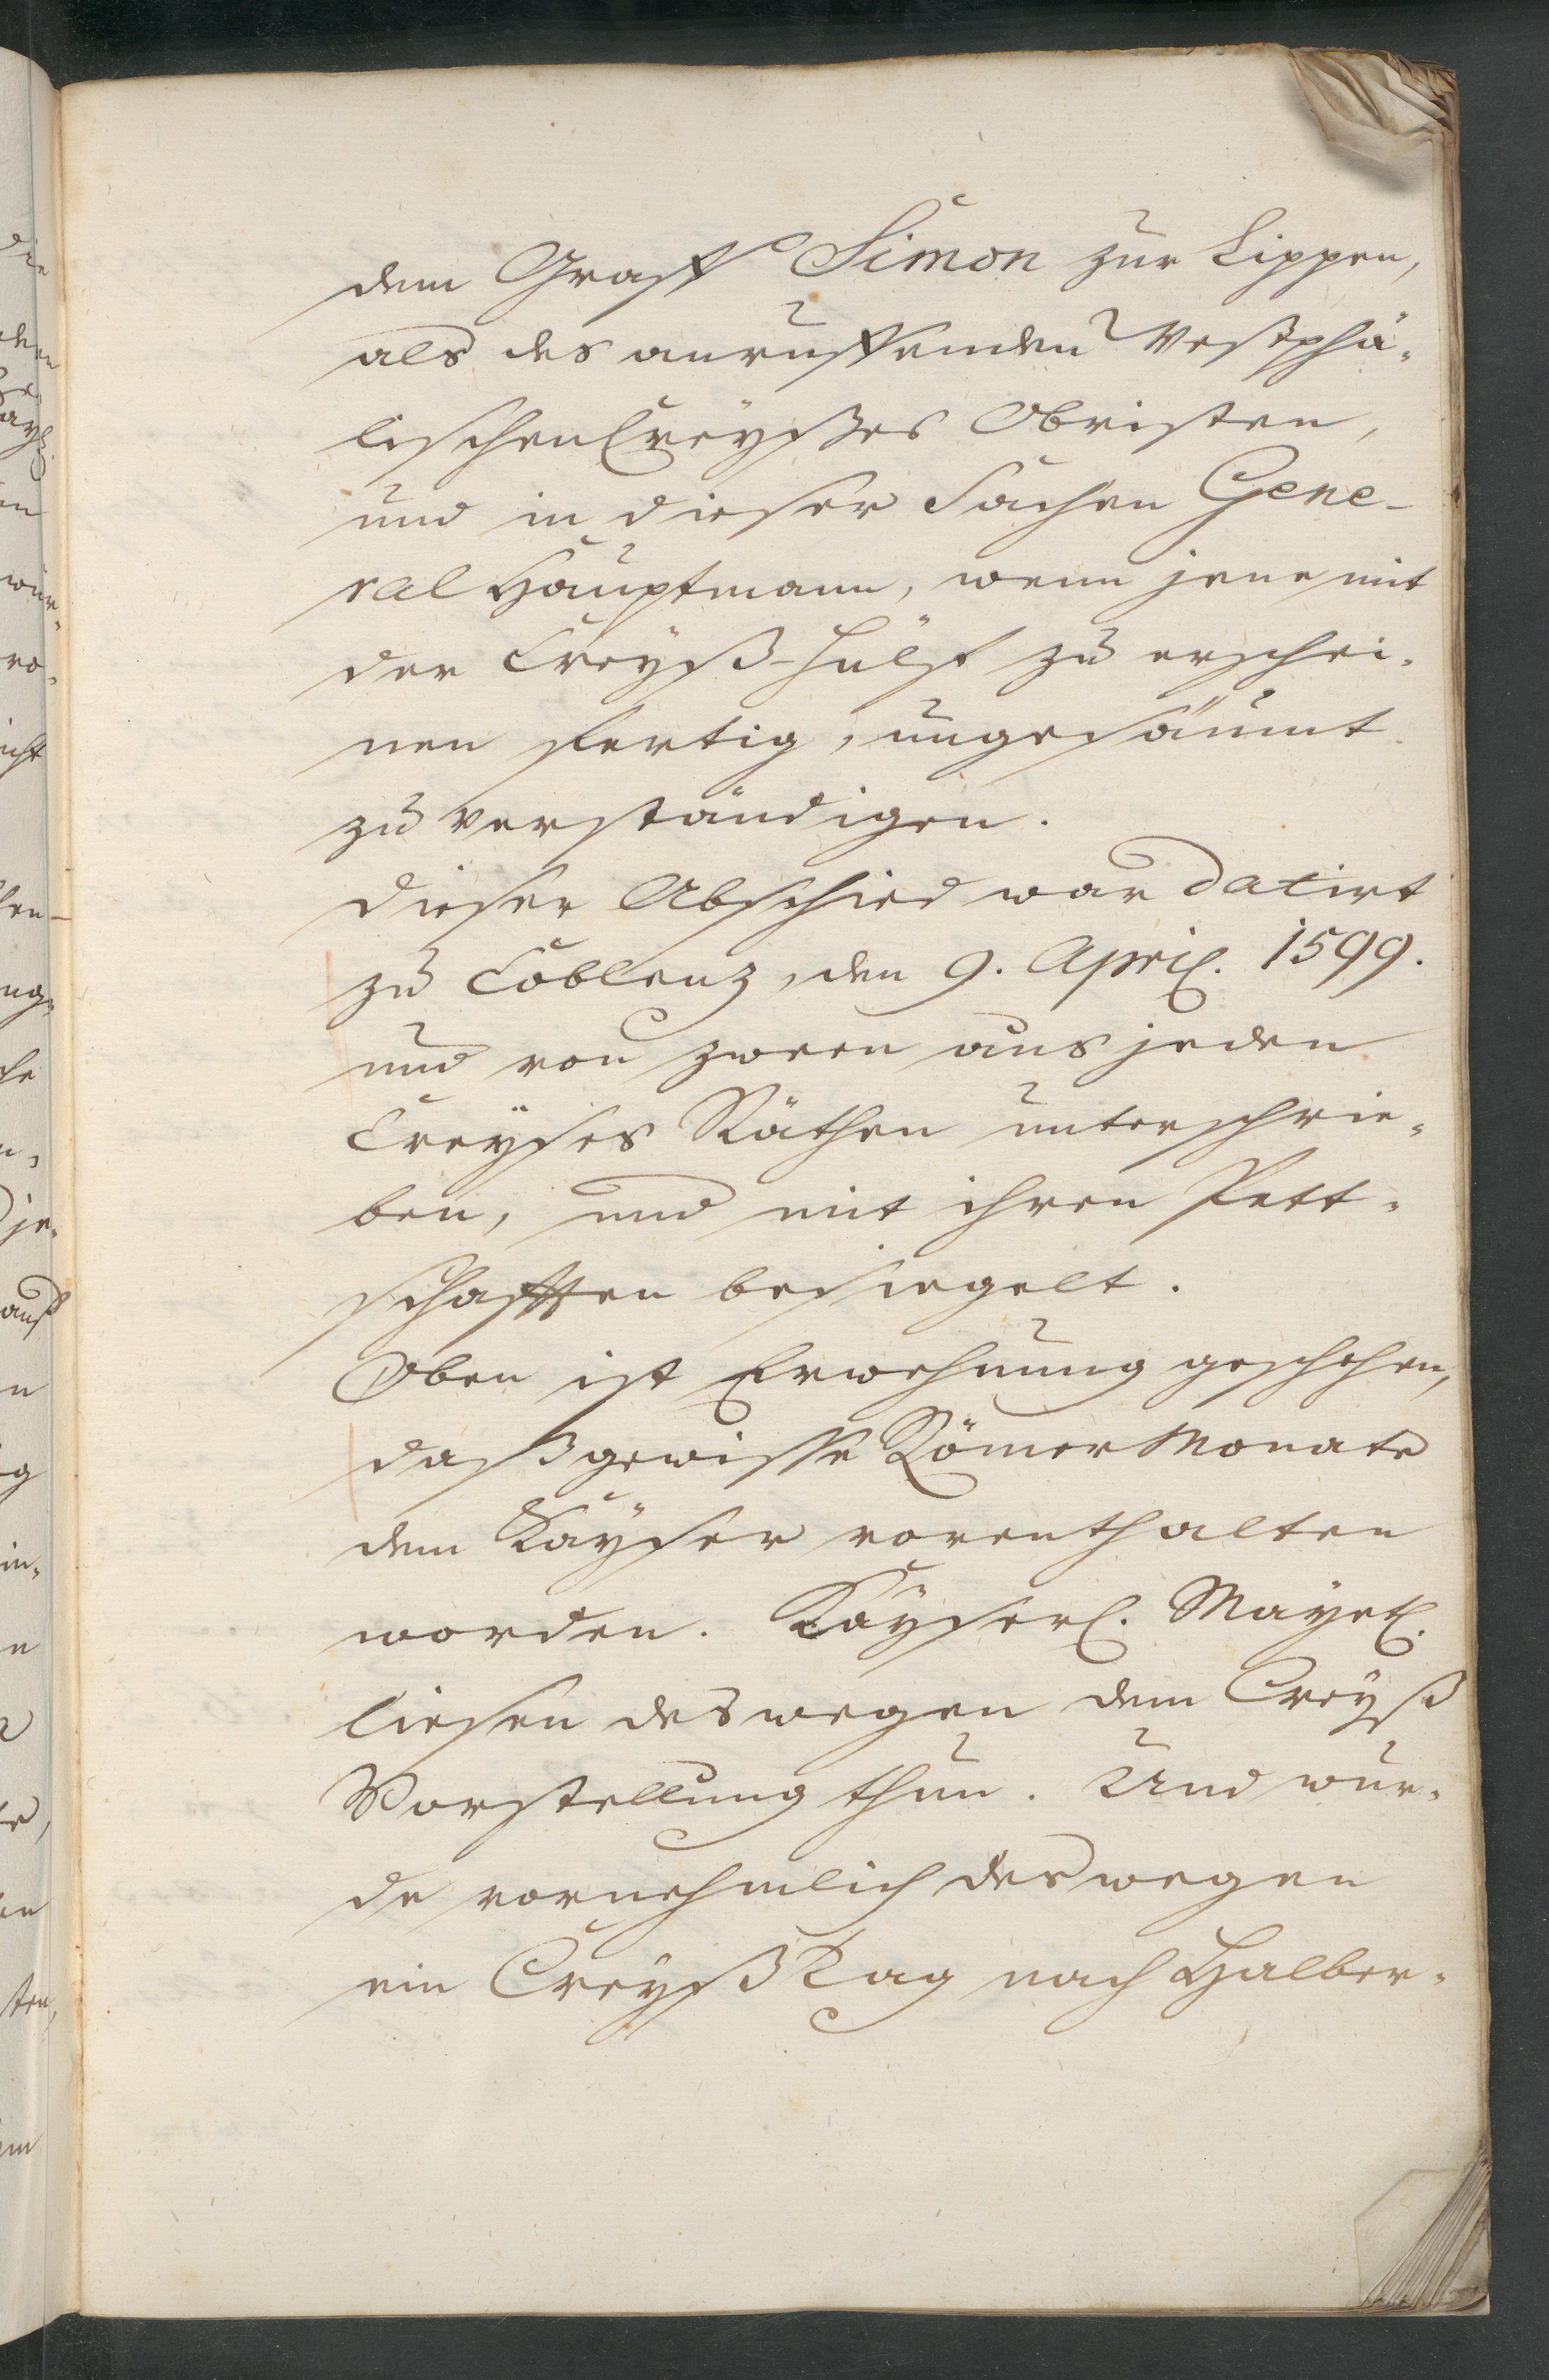 dem Graff Simon zur Lippen,
als des anruffenden Westphä-
lischen Creyßes Obristen,
und in dieser Sachen Gene-
ral Hauptmann, wenn jene mit
der Creyß-Hülf zu erschei-
nen fertig, ungesäumt
zu verständigen.
Dieser Abschied war datirt
zu Coblenz, den 9. April. 1599.
und von zween aus jeden
Creyses Räthen unterschrie-
ben, und mit ihren Pett-
schafften besiegelt.
Oben ist Erwehnung geschehen,
daß gewisse Römer Monate
dem Kayser vorenthalten
worden. Kayserl. Mayet.
liesen deswegen dem Creyß
Vorstellung thun. Und wur-
de vornehmlich deswegen
ein Creyß Tag nach Halber-